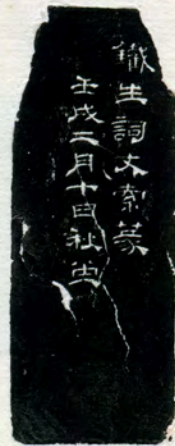 鐵生詞丈索篆
壬戌二月十日秋堂